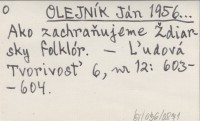 O
OLEJNÍK Ján 1956...
Ako zachraňujeme Ždiar-
sky folklór. – Ľudová
Tvorivosť 6, nr 12: 603-
-604.